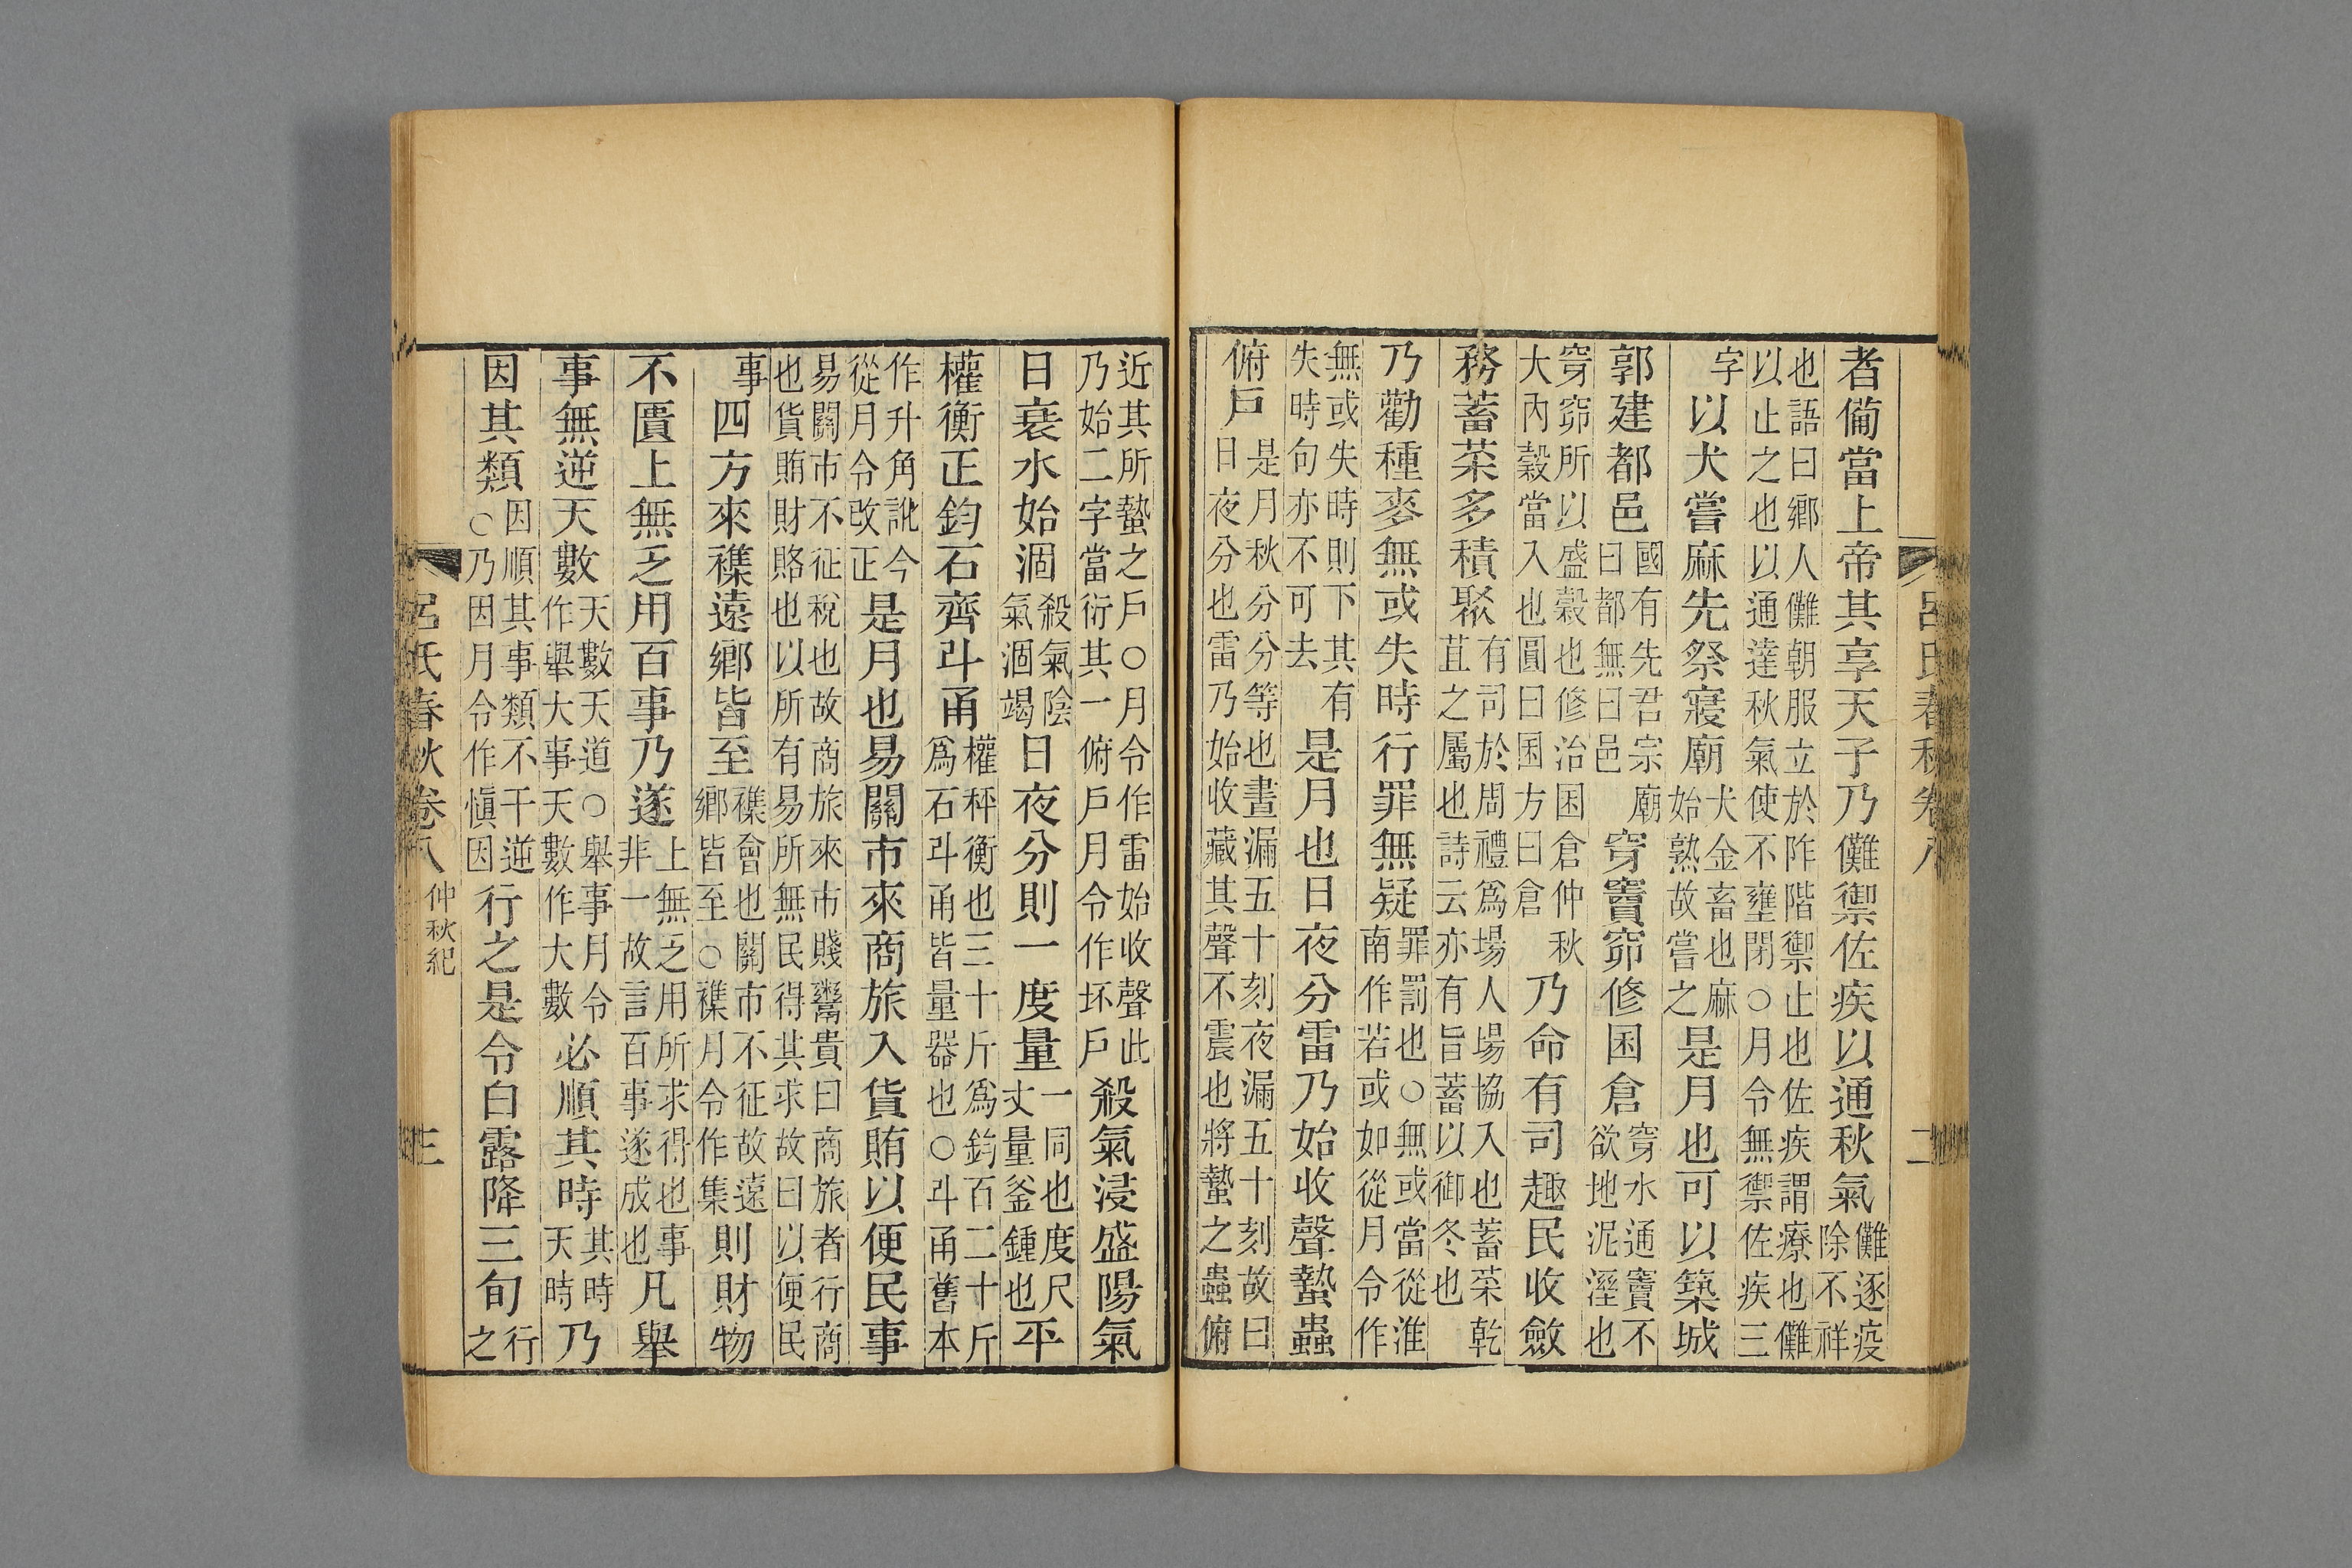 呂氏春秋卷八 二
者僃當上帝其享天子乃儺禦佐疾以通秋氣儺逐疫除不祥
也語曰鄉人儺朝服立於阼階禦止也佐疾謂療也儺以止之也以通達秋氣使不壅閉○月令無禦佐疾三
字以犬嘗麻先祭寢廟犬金畜也麻始熟故嘗之是月也可以築城
郭建都邑國有先君宗廟曰都無曰邑穿竇窌修囷倉穿水通竇不欲地泥溼也
穿窌所以盛穀也修治囷倉仲秋大內穀當入也圓曰囷方曰倉乃命有司趣民收斂
務蓄菜多積聚有司於周禮爲場人場協入也蓄菜乾苴之屬也詩云亦有旨蓄以御冬也
乃勸種麥無或失時行罪無疑罪罰也○無或當從淮南作若或如從月令作
無或失時則下其有失時句亦不可去是月也日夜分雷乃始收聲蟄蟲
俯戶是月秋分分等也晝漏五十刻夜漏五十刻故曰日夜分也雷乃始收藏其聲不震也將蟄之蟲俯
近其所蟄之戶○月令作雷始收聲此乃始二字當衍其一俯戶月令作坏戶殺氣浸盛陽氣
日衰水始涸殺氣陰氣涸竭日夜分則一度量一同也度尺丈量釜鍾也平
權衡正鈞石齊斗甬權秤衡也三十斤爲鈞百二十斤爲石斗甬皆量器也○斗甬舊本
作升角訛今從月令改正是月也易關市來商旅入貨賄以便民事
易關市不征稅也故商旅來市賤鬻貴曰商旅者行商也貨賄財賂也以所有易所無民得其求故曰以便民
事四方來襍遠鄉皆至襍會也關市不征故遠鄉皆至○襍月令作集則財物
不匱上無乏用百事乃遂上無乏用所求得也事非一故言百事遂成也凡舉
事無逆天數天數天道○舉事月令作舉大事天數作大數必順其時其時天時乃
因其類因順其事類不干逆○乃因月令作愼因行之是令白露降三旬行之
呂氏春秋卷八 仲秋紀 三